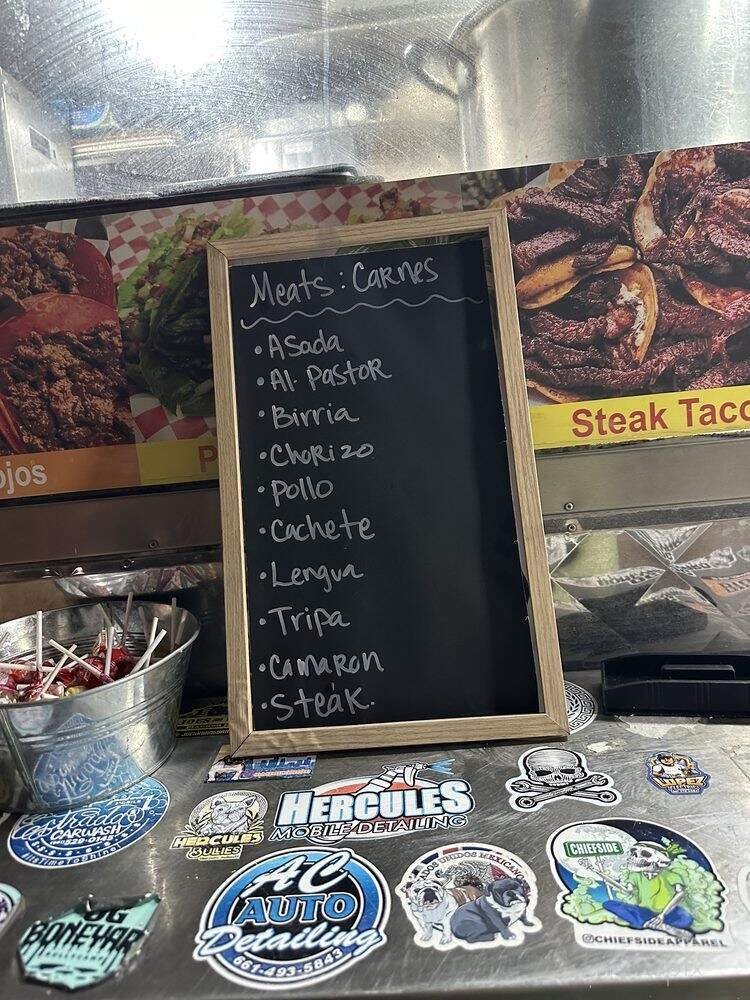 Meats: Carnes
• Asada
• Al. Pastor
• Birria
• Chorizo
• Pollo
• Cachete
• Lengua
• Tripa
• Camaron
• Steak.
ojos
P
Steak Taco
CARWASH
HERCULES
BULLIES
HERCULES
MOBILE DETAILING
LUPEZ
OG
BONEYAR
AC
AUTO
Detailing
661-493-5843
UNIDOS MEXICAN
CHIEFSIDE
@CHIEFSIDEAPPAREL